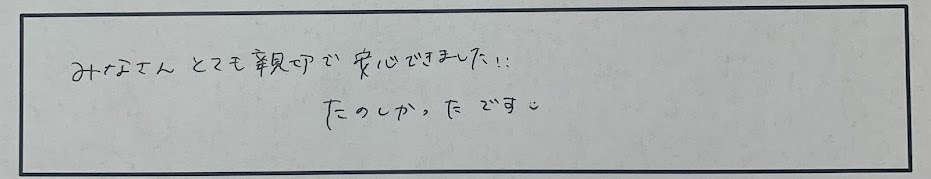 みなさん とても親切で 安心できました!!
たのしかったです